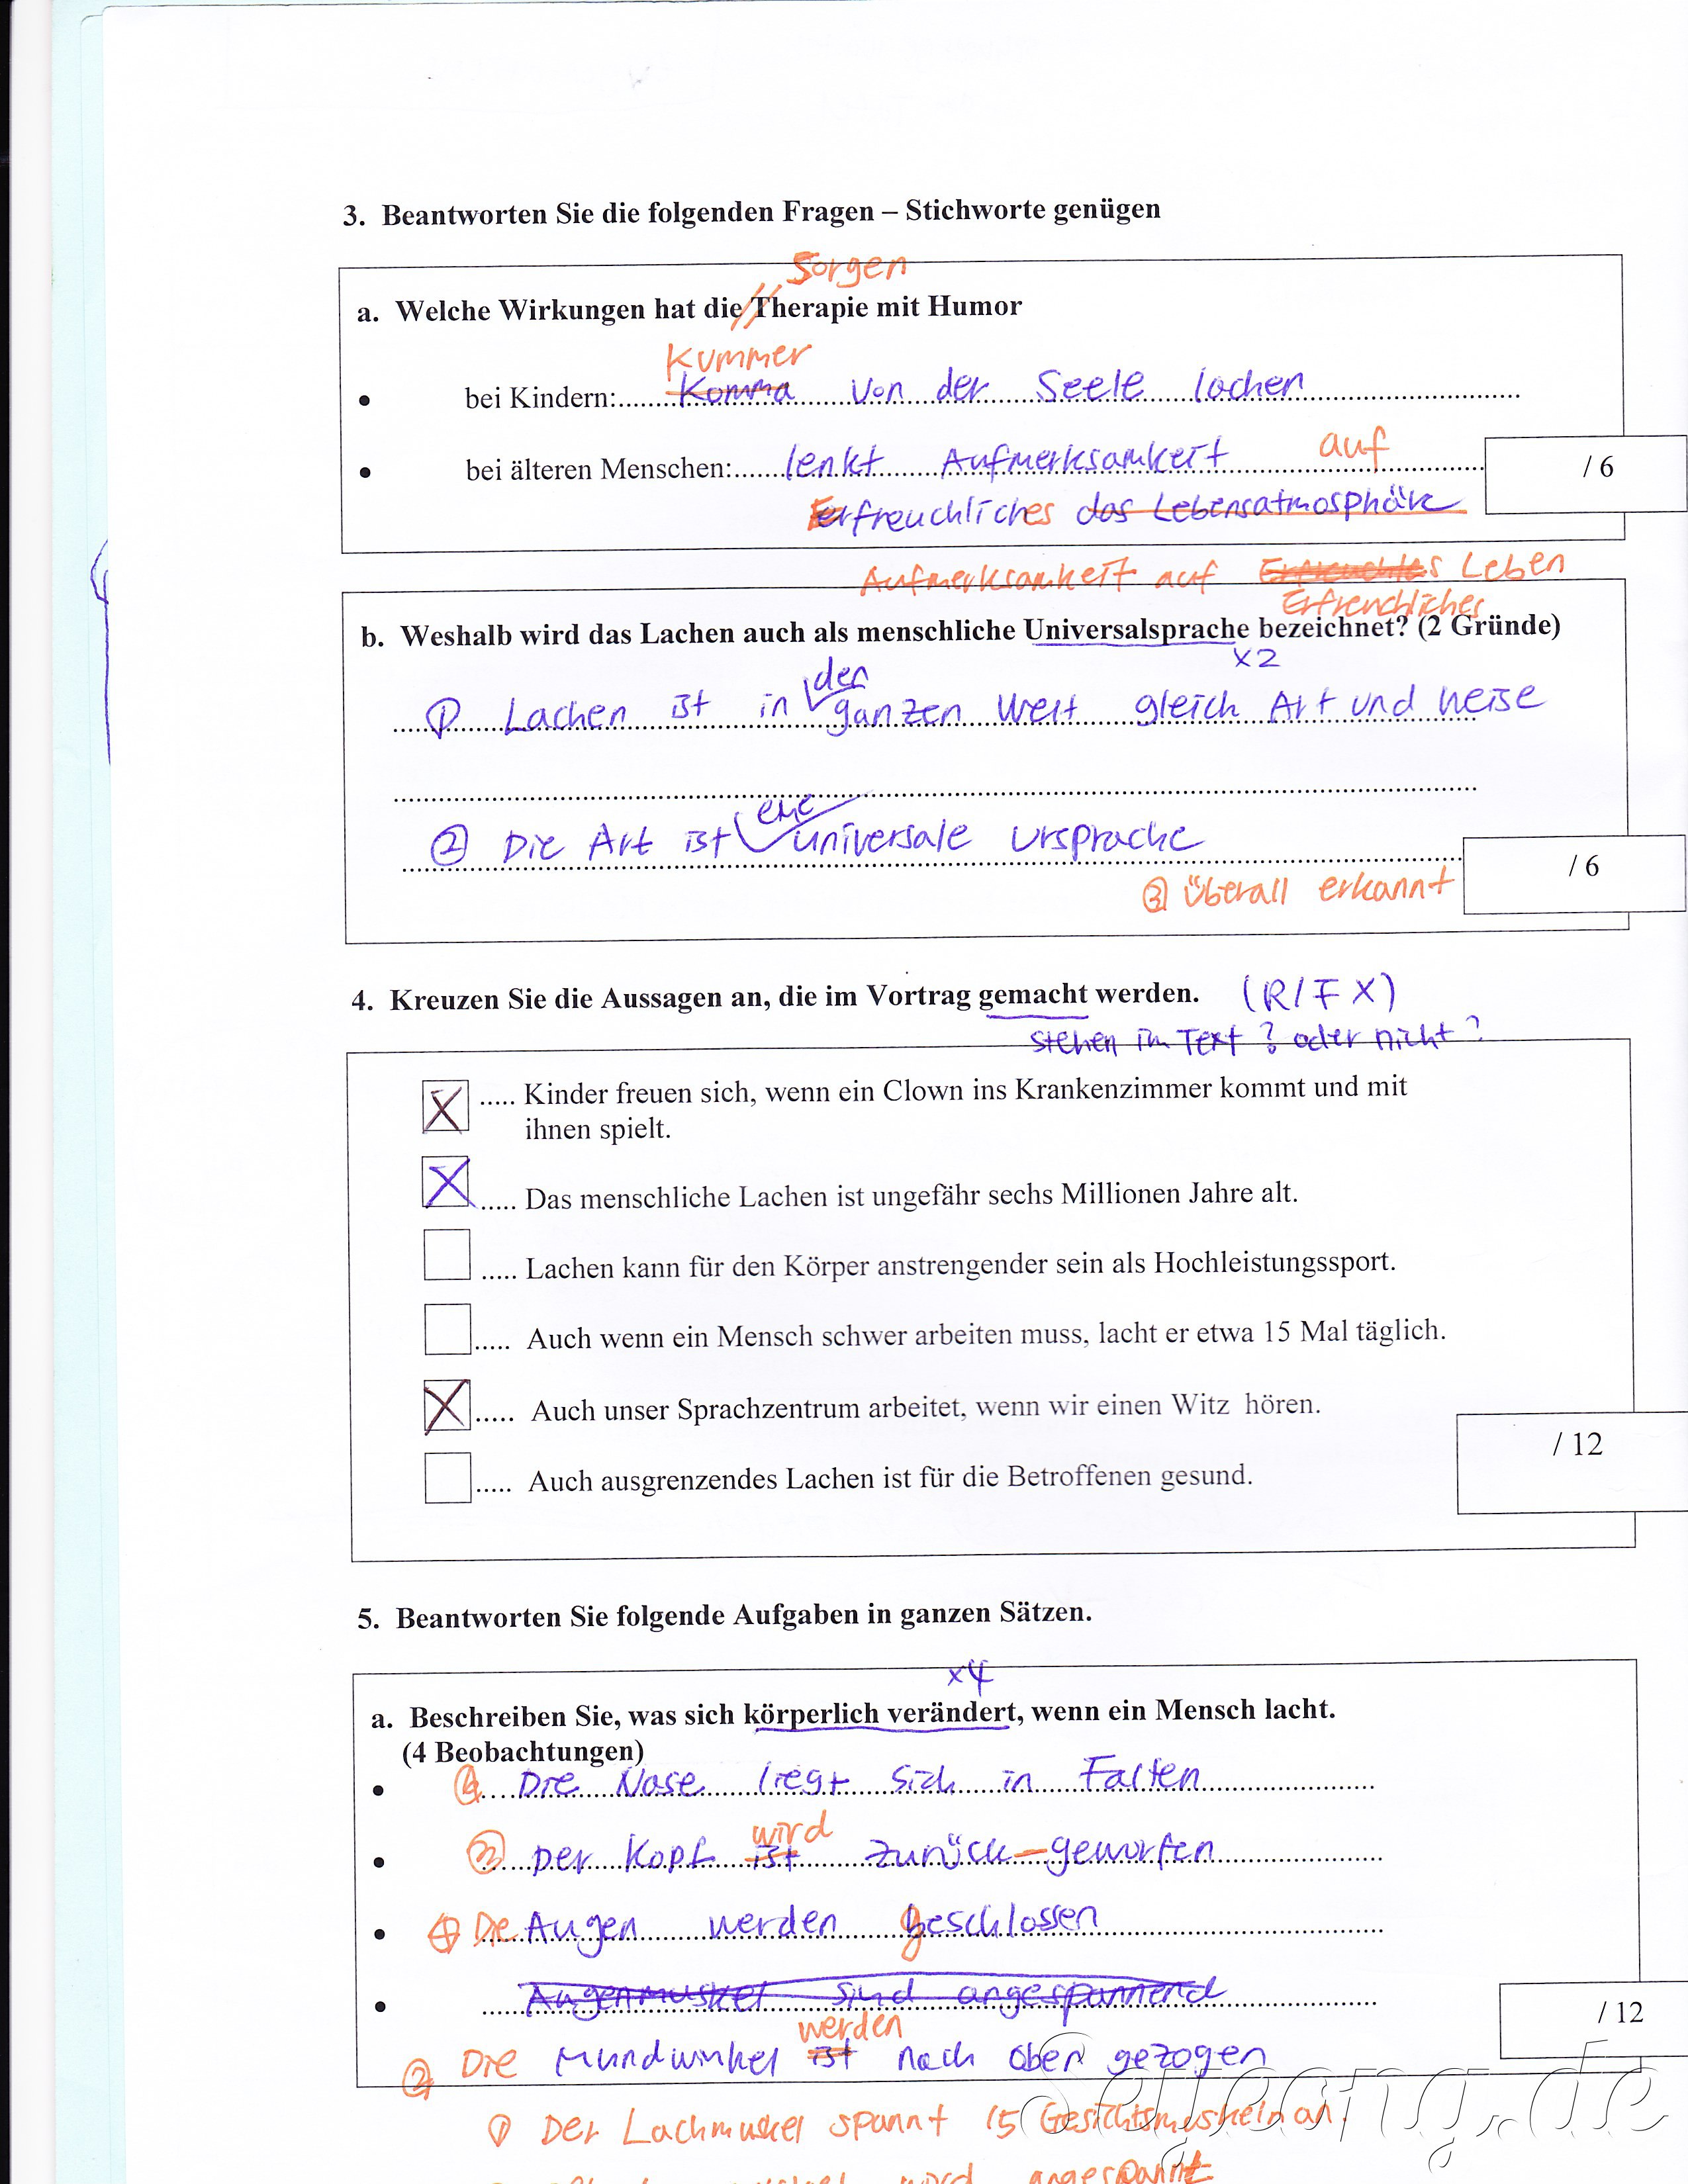 3. Beantworten Sie die folgenden Fragen – Stichworte genügen
Sorgen
a. Welche Wirkungen hat die Therapie mit Humor
Kummer
• bei Kindern:......Komma von der Seele lachen
• bei älteren Menschen:.....lenkt Aufmerksamkeit auf
/ 6
Erfreuchliches das Lebensatmosphäre
Aufmerksamkeit auf s Leben
Erfreuchliches
b. Weshalb wird das Lachen auch als menschliche Universalsprache bezeichnet? (2 Gründe)
x2
den
① Lachen ist in ganzen Welt gleich Art und Weise
eine
② Die Art ist universale Ursprache
/ 6
③ überall erkannt
4. Kreuzen Sie die Aussagen an, die im Vortrag gemacht werden. (R/F X)
stehen im Text ? oder nicht ?
X ..... Kinder freuen sich, wenn ein Clown ins Krankenzimmer kommt und mit
ihnen spielt.
X ..... Das menschliche Lachen ist ungefähr sechs Millionen Jahre alt.
..... Lachen kann für den Körper anstrengender sein als Hochleistungssport.
..... Auch wenn ein Mensch schwer arbeiten muss, lacht er etwa 15 Mal täglich.
X ..... Auch unser Sprachzentrum arbeitet, wenn wir einen Witz hören.
/ 12
..... Auch ausgrenzendes Lachen ist für die Betroffenen gesund.
5. Beantworten Sie folgende Aufgaben in ganzen Sätzen.
x4
a. Beschreiben Sie, was sich körperlich verändert, wenn ein Mensch lacht.
(4 Beobachtungen)
• Die Nase liegt sich in Falten
wird
• ③ Der Kopf ist zurück-geworfen
• ④ Die Augen werden geschlossen
• Augenmuskel sind angespannend
/ 12
werden
② Die Mundwinkel ist nach oben gezogen
Sejeong.de
① Der Lachmuskel spannt 15 Gesichtsmuskeln an.
wird angespannt